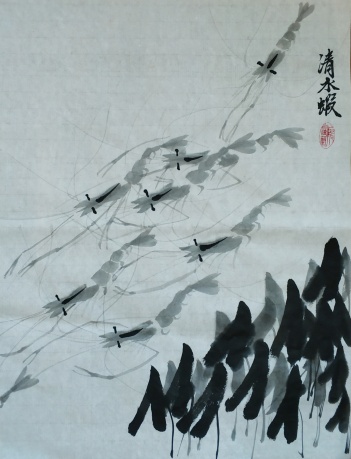 清水蝦